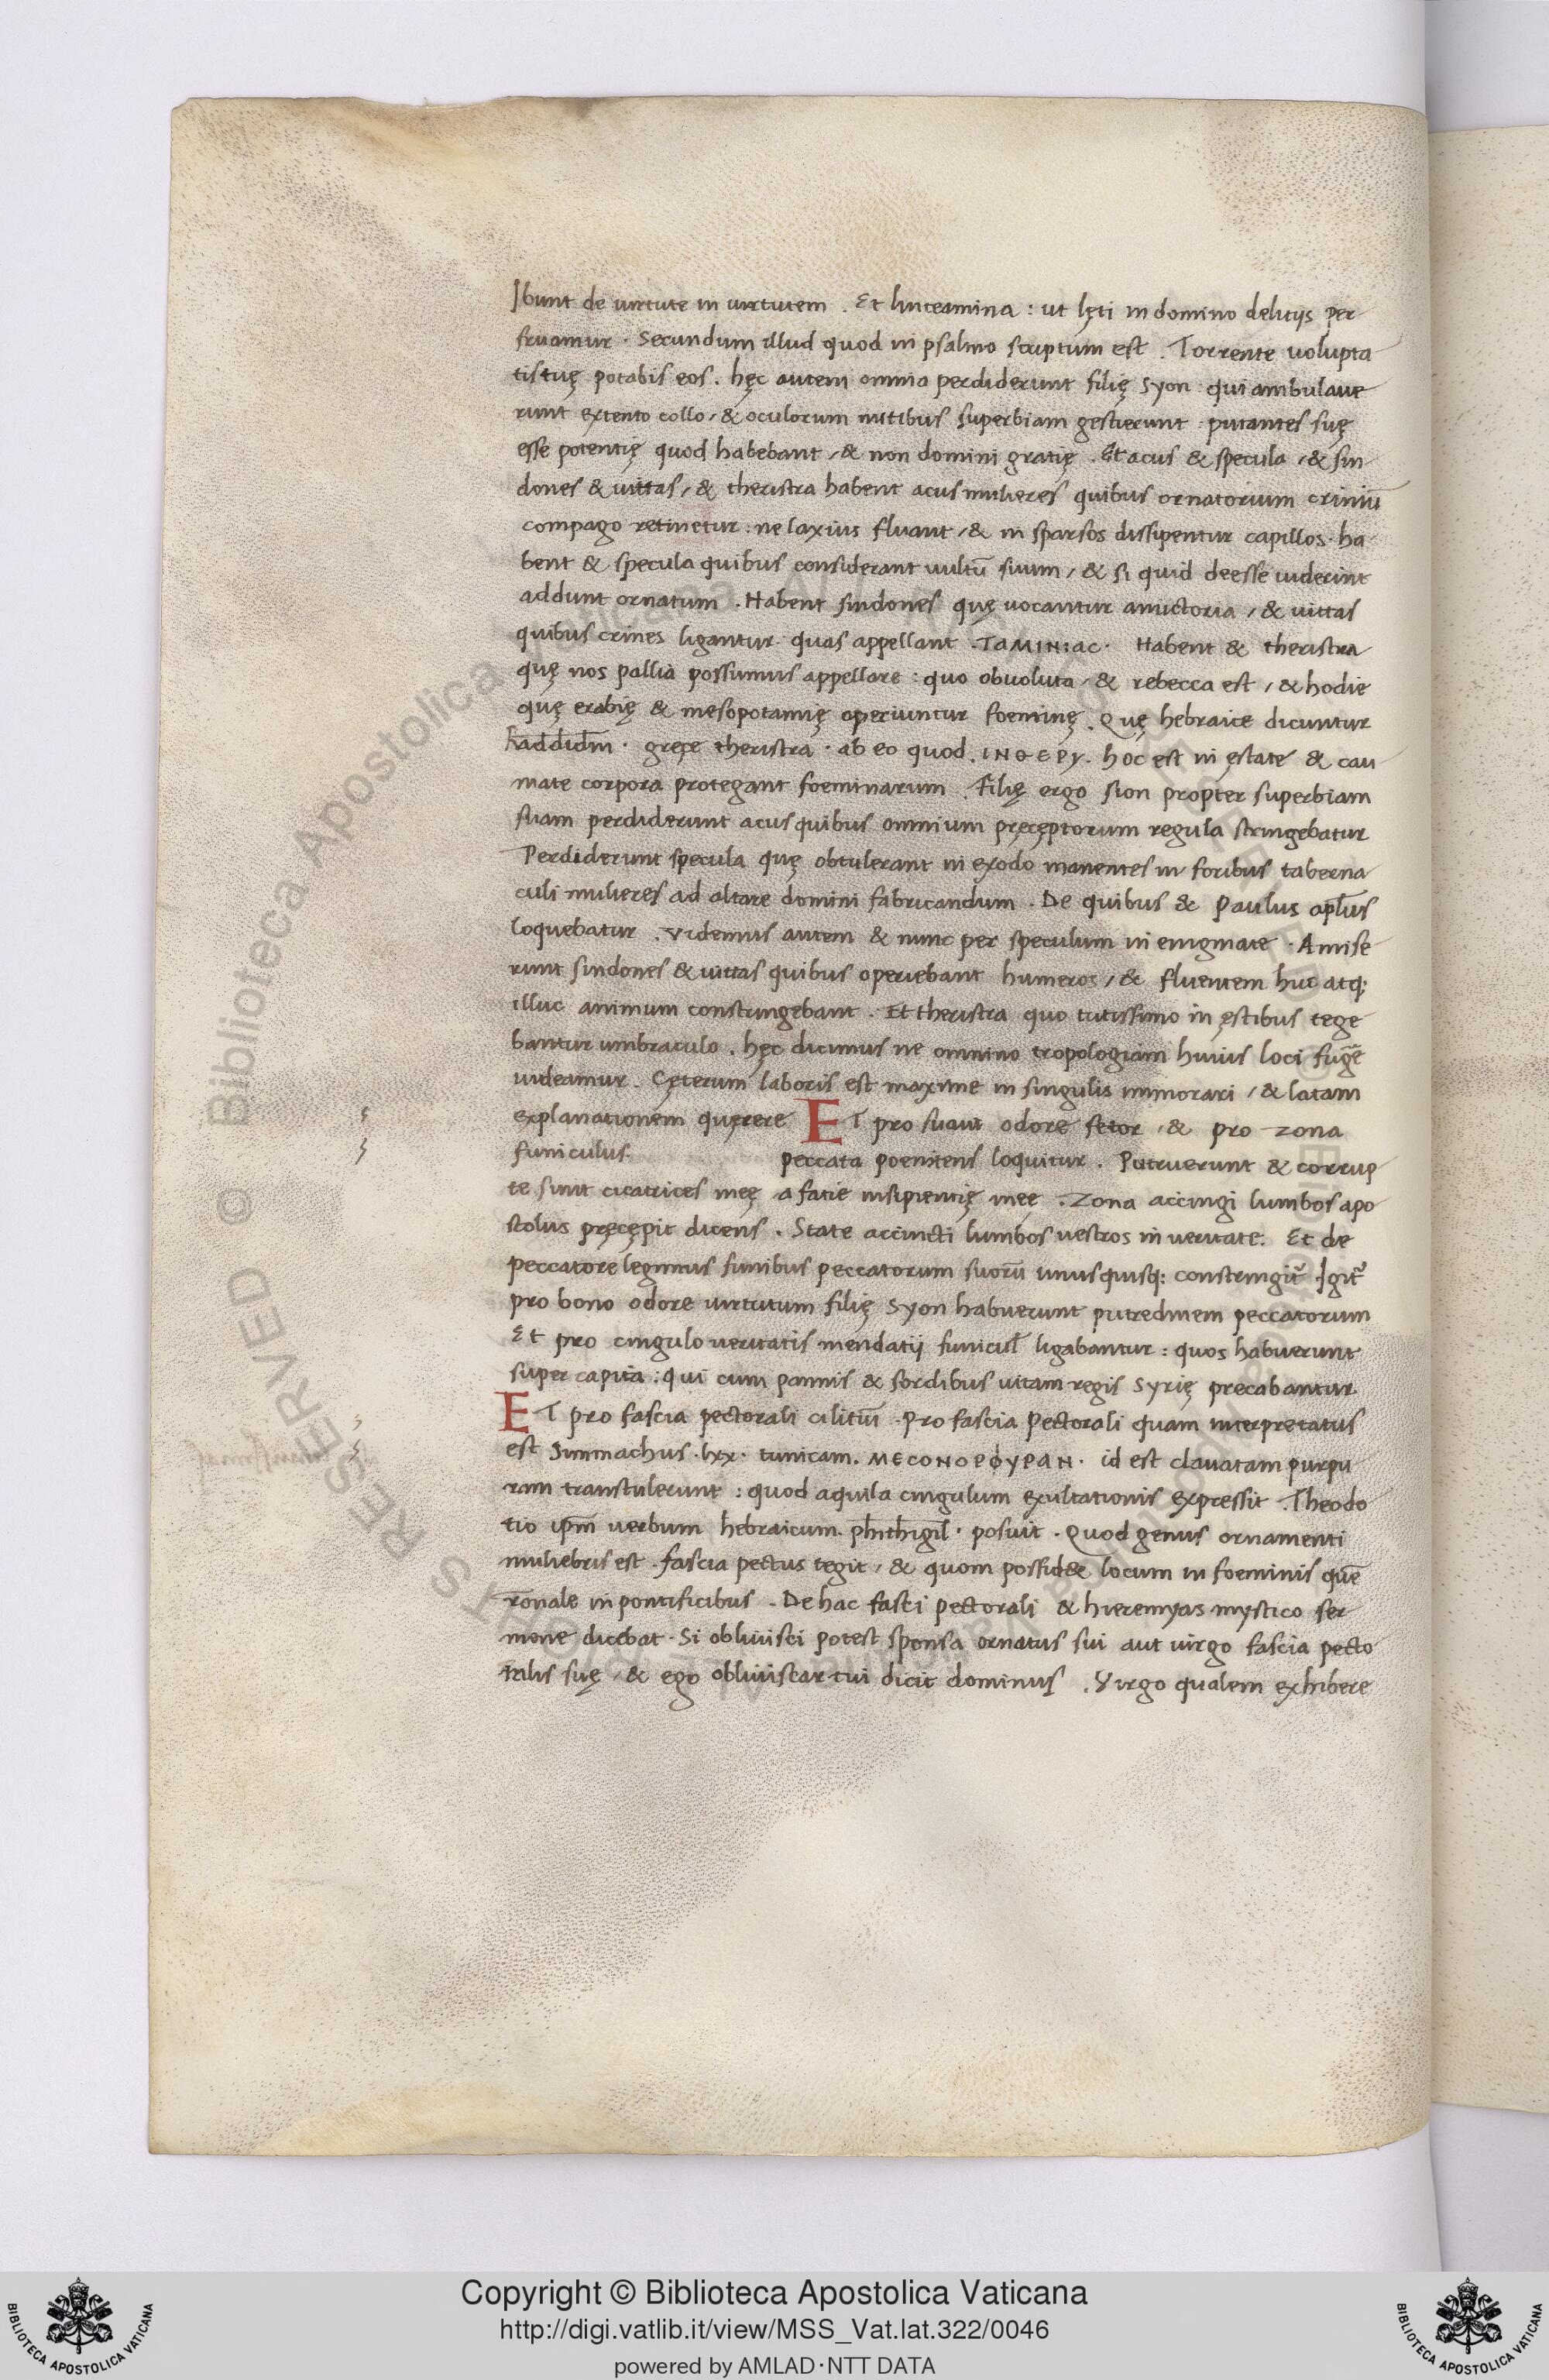 Ibunt de uirtute in uirtutem . Et linteamina : ut lęti in domino delitijs per
fruamur . Secundum illud quod in psalmo scriptum est . Torrente uolupta
tis tuę potabis eos . hęc autem omnia perdiderunt filię Syon : qui ambulaue
runt extento collo / & oculorum nutibus superbiam gestierunt : putantes suę
esse potentię quod habebant / & non domini gratię . Et acus & specula / & sin
dones & uittas / & theristra habent acus mulieres quibus ornatorium criniū
compago retinetur : ne laxius fluant / & in sparsos dissipentur capillos . ha
bent & specula quibus considerant uultū suum / & si quid deesse uiderint
addunt ornatum . Habent sindones quę uocantur amictoria / & uittas
quibus crines ligantur . quas appellant . TaMINIac . Habent & theristra
quę nos pallia possumus appellare : quo obuoluta / & rebecca est / & hodie
quę erabię & mesopotamię operiuntur foeminę . Quę hebraice dicuntur
haddidm . gręce theristra . ab eo quod . INΘEPY . hoc est in ęstate & cau
mate corpora protegant foeminarum . Filię ergo sion propter superbiam
suam perdiderunt acus quibus omnium pręcęptorum regula stringebatur
Perdiderunt specula quę obtulerant in exodo manentes in foribus taberna
culi mulieres ad altare domini fabricandum . De quibus & Paulus apl̄us
loquebatur . Videmus autem & nunc per speculum in enigmate . Amise
runt sindones & uittas quibus operiebant humeros / & fluentem huc atq;
illuc animum constringebant . Et theristra quo tutissimo in ęstibus tege
bantur umbraculo . hęc dicimus ne omnino tropologiam huius loci fugē
uideamur . Cęterum laboris est maxime in singulis immorari / & latam
explanationem quęrere ET pro suaui odore fetor / & pro zona
funiculus. peccata poenitens loquitur . Putruerunt & corrup
te sunt cicatrices meę a facie insipientię mee . Zona accingi lumbos apo
stolus pręcępit dicens . State accincti lumbos uestros in ueritate . Et de
peccatore legimus funibus peccatorum suorū unusquisq; constringit᷑ Igit᷑
pro bono odore uirtutum filię Syon habuerunt putredinem peccatorum
Et pro cingulo ueritatis mendatij funicul̄ ligabantur : quos habuerunt
super capita : qui cum pannis & sordibus uitam regis Syrię precabantur
ET pro fascia pectorali cilitiū . Pro fascia Pectorali quam interpretatus
est Simmachus . lxx . tunicam . MECONOPϕYPaN . id est clauatam purpu
ram transtulerunt : quod aquila cingulum exultationis expressit . Theodo
tio ip̄m uerbum hebraicum . phthigil . posuit . Quod genus ornamenti
muliebris est . fascia pectus tegit / & quom possid& locum in foeminis quē
rōnale in pontificibus . De hac fasci pectorali & hieremyas mystico ser
mone dicebat . Si obliuisci potest sponsa ornatus sui aut uirgo fascia pecto
ralis suę / & ego obliuiscar tui dicit dominus . Virgo qualem exhibere
Copyright © Biblioteca Apostolica Vaticana
http://digi.vatlib.it/view/MSS_Vat.lat.322/0046
powered by AMLAD·NTT DATA